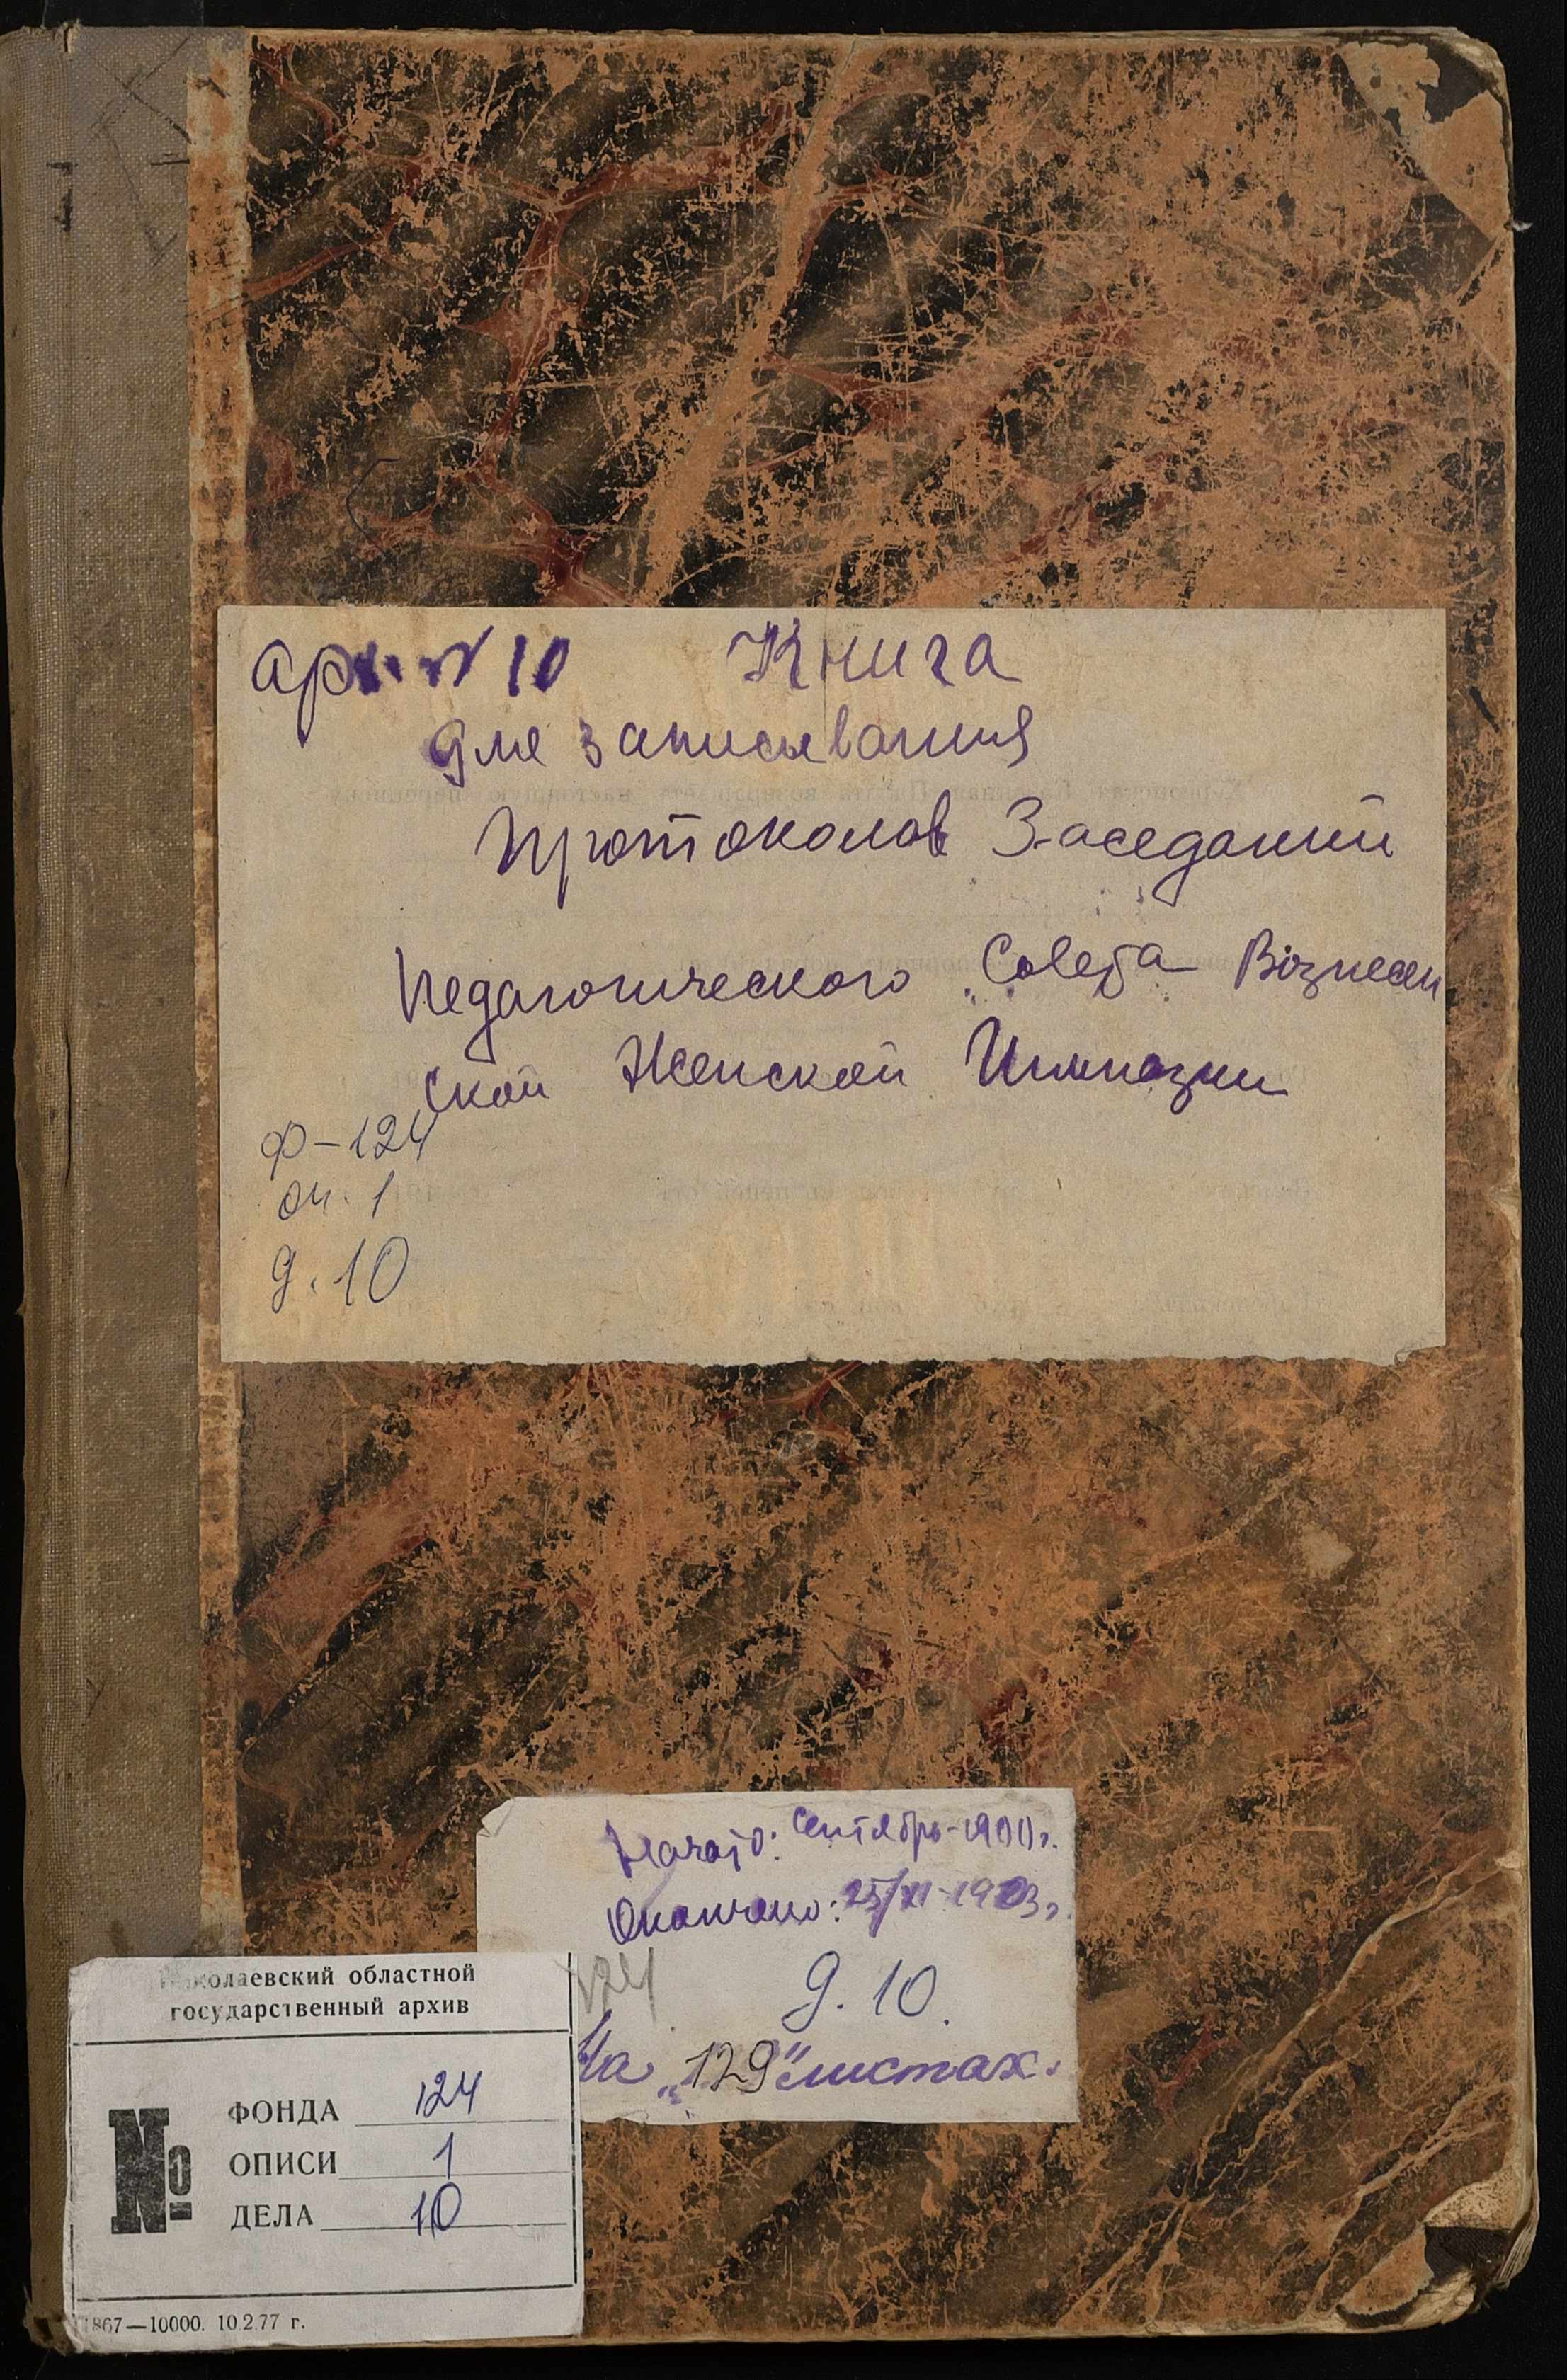 Арх. № 10 Книга
для записывания
Протоколов Заседаний
Педагогического Совета Вознесен
ской Женской Гимназии
Ф-124
оп. 1
д. 10
Начато: Сентябрь-1900 г.
Окончано: 25/XI-1903 г.
124
д. 10.
На „129" листах.
Николаевский областной
государственный архив
№
ФОНДА 124
ОПИСИ 1
ДЕЛА 10
1867—10000. 10.2.77 г.